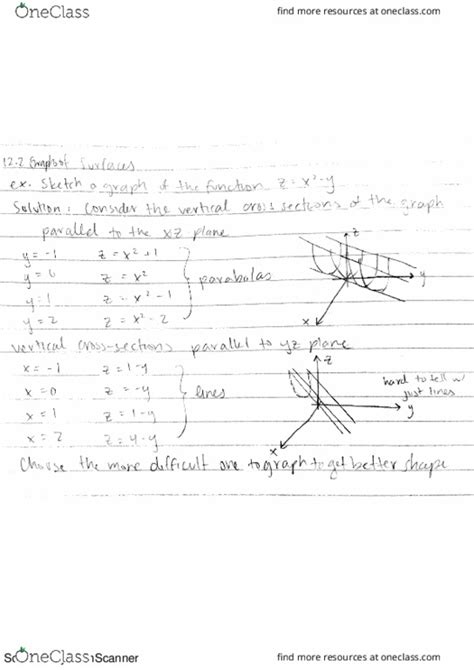 OneClass
find more resources at oneclass.com
12.2 Graphs of Surfaces
ex. Sketch a graph of the function z = x² - y
Solution: Consider the vertical cross sections of the graph
parallel to the xz plane
y = -1 z = x² + 1
y = 0 z = x²
y = 1 z = x² - 1
y = 2 z = x² - 2
parabolas
z
y
x
vertical cross-sections parallel to yz plane
x = -1 z = 1 - y
x = 0 z = -y
x = 1 z = 1 - y
x = 2 z = 4 - y
lines
z
hard to tell w/
just lines
y
x
Choose the more difficult one to graph to get better shape
OneClass
Scanner
find more resources at oneclass.com